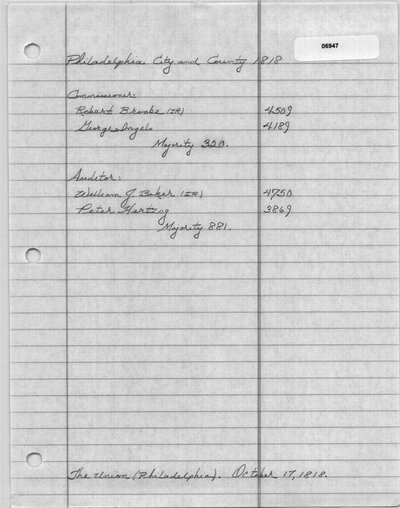 06947
Philadelphia City and County 1818
Commissioner:
Robert Brooke (IR) 4509
George Ingels 4189
Majority 320.
Auditor:
William J Baker (IR) 4750
Peter Hertzog 3869
Majority 881.
The Union (Philadelphia). October 17, 1818.